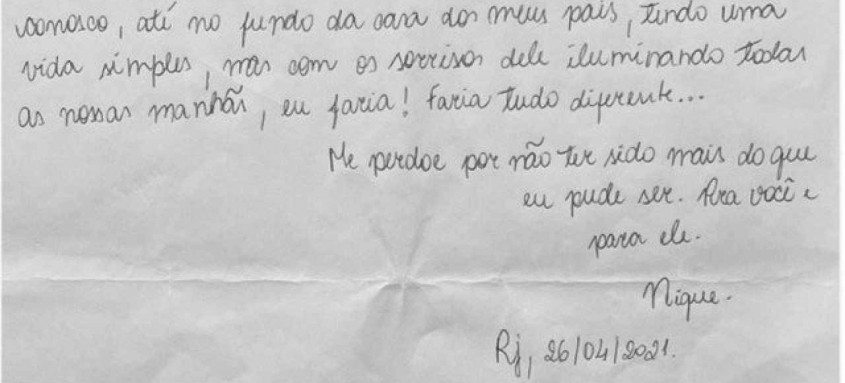 conosco, até no fundo da casa dos meus pais, tendo uma
vida simples, mas com os sorrisos dele iluminando todas
as nossas manhãs, eu faria! Faria tudo diferente...
Me perdoe por não ter sido mais do que
eu pude ser. Para você e
para ele.
Nique.
Rj, 26/04/2021.